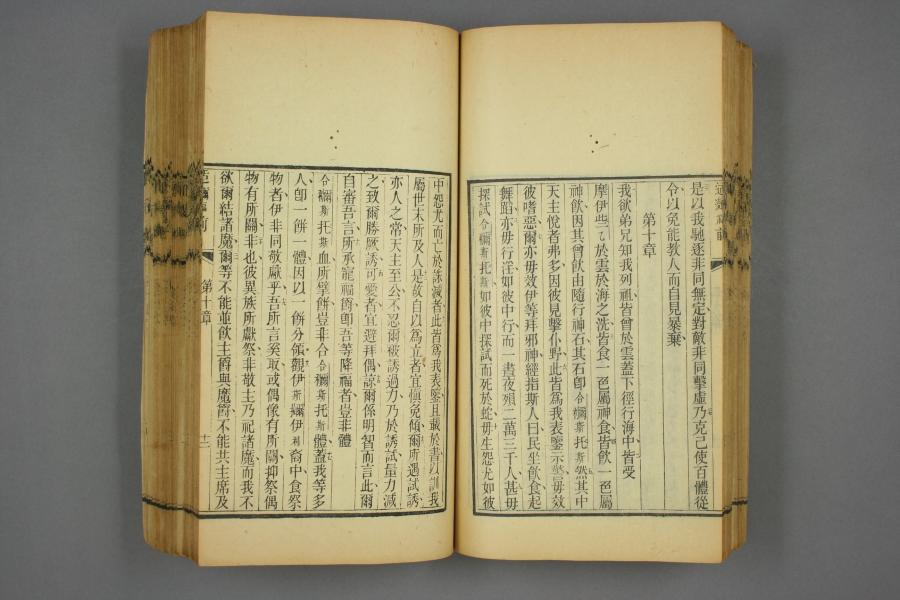 是以我馳逐非同無定對敵非同擊虛乃克己使百體從
令以免能教人而自見暴棄
第十章
我欲弟兄知我列祖皆曾於雲蓋下徑行海中皆受
摩伊些於雲於海之洗皆食一色屬神食皆飲一色屬
神飲因其曾飲由隨行神石其石卽合彌斯托斯然其中
天主悅者弗多因彼見擊仆野此皆為我表鑒示警毋效
彼嗜惡爾亦毋效伊等拜邪神經指斯人曰民坐飲食起
舞蹈亦毋行淫如彼中行而一晝夜殞二萬三千人甚毋
探試合彌斯托斯如彼中探試而死於蛇毋生怨尤如彼
中怨尤而亡於滅者此皆為我表鑒且載於書以訓我
屬世末所及人是故自以為立者宜愼免傾爾所遇試誘
亦人之常天主至公不忍爾被誘過力乃於誘試量力減
之致爾勝厥誘可愛者宜避拜偶諒爾係明智而言此爾
自審吾言所承寵福爵卽吾等降福者豈非體
合彌斯托斯血所擘餅豈非合彌斯托斯體蓋我等多
人卽一餅一體因以一餅分領觀伊斯爾伊利裔中食祭
物者伊非同敬厥乎吾所言奚取或偶像有所關抑祭偶
物有所關非也彼異族所獻祭非敬主乃祀諸魔而我不
欲爾結諸魔爾等不能並飲主爵與魔爵不能共主席及
第十章